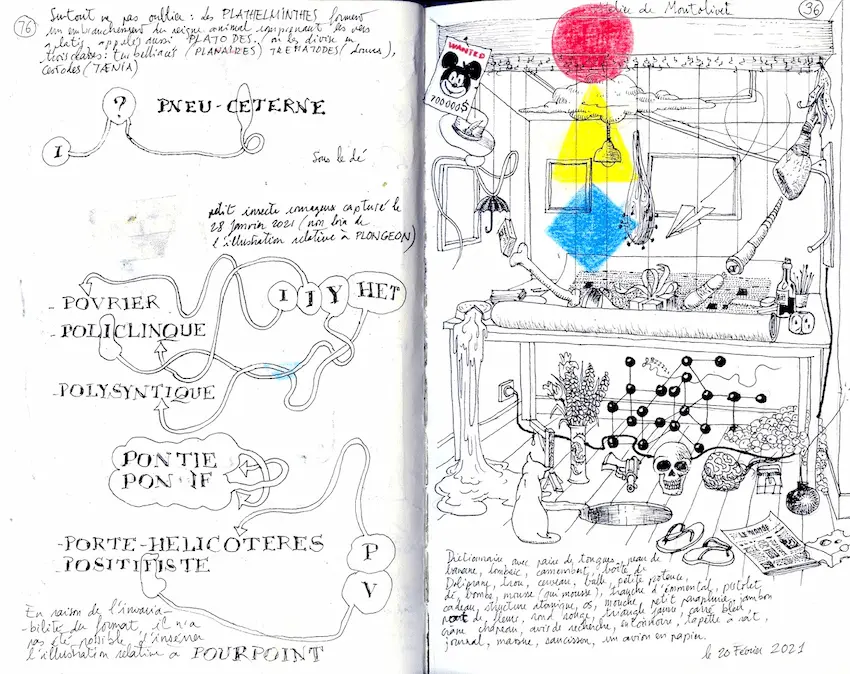 76
Surtout ne pas oublier : les PLATHELMINTHES forment
un embranchement du règne animal comprenant les vers
plats appelés aussi PLATODES, on les divise en
trois classes : Turbellariés (PLANAIRES) TREMATODES (Douves),
Cestodes (TÆNIA)
?
I
PNEU-CETERNE
Sous le dé
petit insecte courageux capturé le
28 janvier 2021 (non loin de
l'illustration relative à PLONGEON)
I I Y HET
-POVRIER
-POLICLINQUE
-POLYSYNTIQUE
PONTIE
PON IF
-PORTE-HELICOTERES
-POSITIFISTE
P
V
En raison de l'invaria-
-bilité du format, il n'a
pas été possible d'insérer
l'illustration relative à POURPOINT
Atelier de Montolivet
36
WANTED
700000$
gzzzz
LE MONDE
Dictionnaire, avec paire de tongues, peau de
banane, lombric, camembert, boîte de
Doliprane, trou, cerveau, bulb, petite potence,
dé, bombe, mousse (qui mousse), tranche d'emmental, pistolet,
cadeau, structure atomique, os, mouche, petit parapluie, jambon
pot de fleurs, rond rouge, triangle jaune, carré bleu,
crâne, chapeau, avis de recherche, entonnoir, tapette à rat,
journal, marine, saucisson, un avion en papier.
le 20 Février 2021